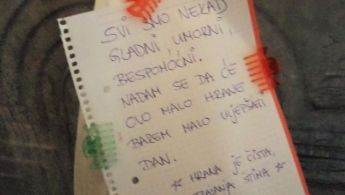 SVI SMO NEKAD
GLADNI, UMORNI,
BESPOMOĆNI.
NADAM SE DA ĆE
OVO MALO HRANE
BAREM MALO ULJEPŠATI
DAN.
* HRANA JE ČISTA,
ŠTIMA *